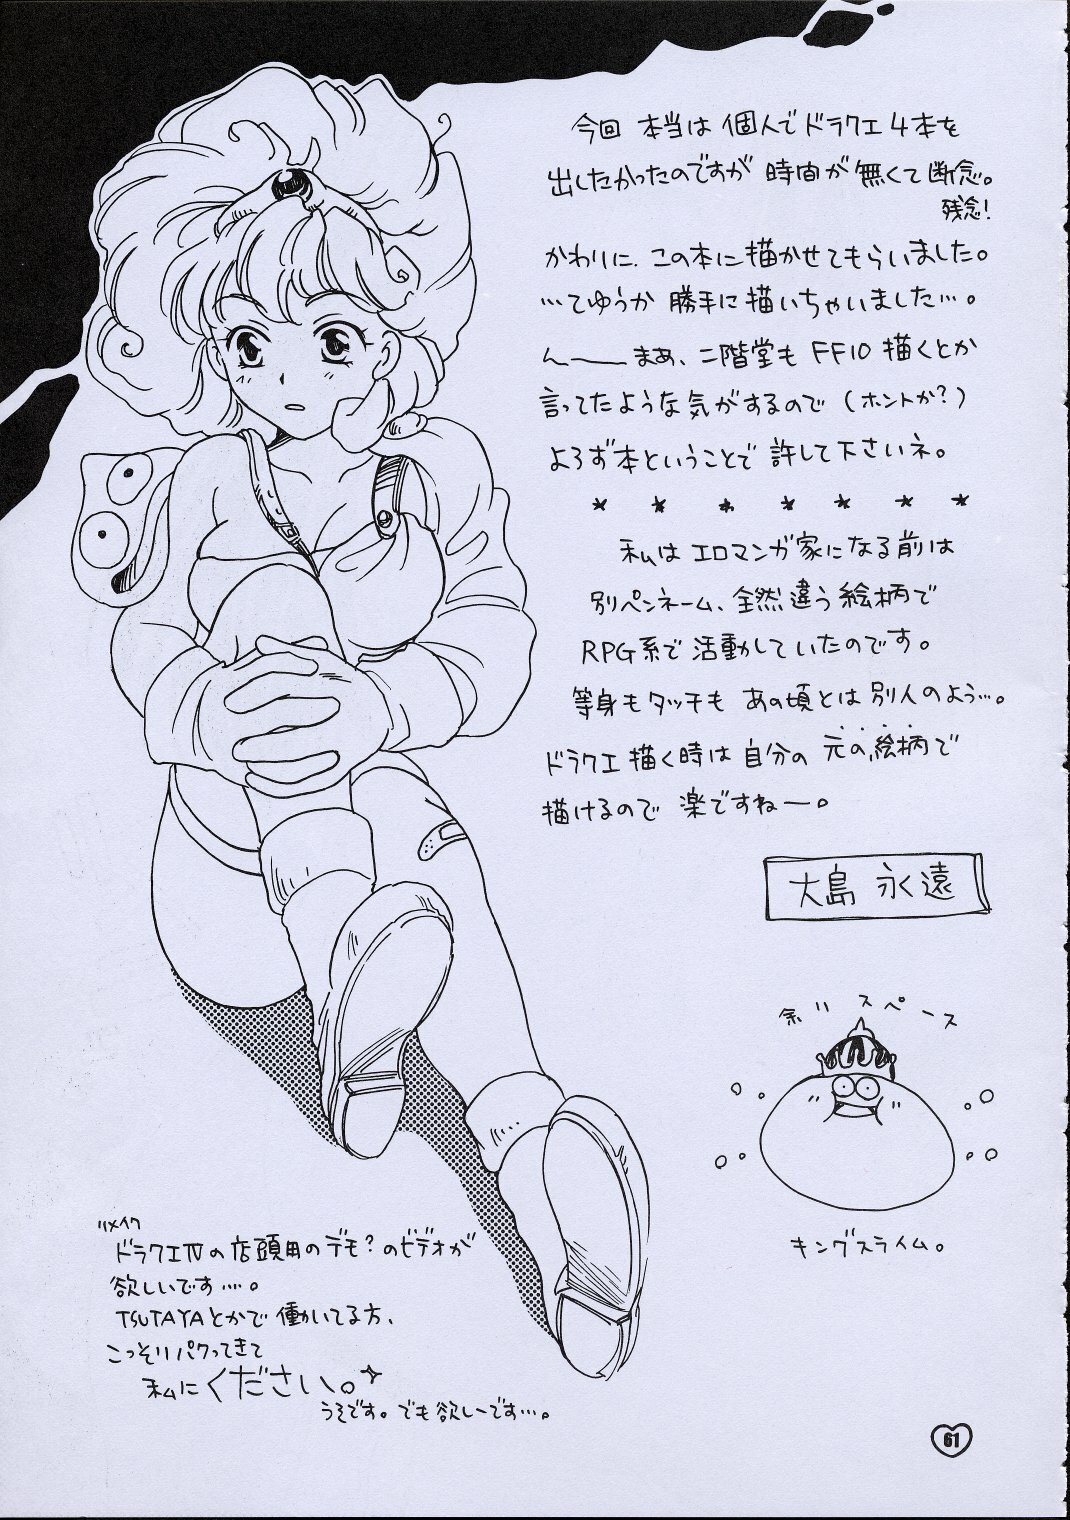 今回 本当は 個人で ドラクエ 4本を
出したかったのですが 時間が 無くて 断念。
残念!
かわりに、この本に 描かせてもらいました。
…てゆうか 勝手に 描いちゃいました…。
ん――まあ、二階堂も FF10 描くとか
言ってたような 気がするので (ホントか?)
よろず本ということで 許して下さいネ。
* * * * * * *
私は エロマンガ家になる前は
別ペンネーム、全然違う 絵柄で
RPG系で 活動していたのです。
等身もタッチも あの頃とは 別人のよう…。
ドラクエ 描く時は 自分の 元の絵柄で
描けるので 楽ですねー。
大島 永遠
余りスペース
キングスライム。
リメイク
ドラクエⅣの店頭用のデモ?のビデオが
欲しいです…。
TSUTAYAとかで 働いてる方、
こっそりパクってきて
私にください。
うそです。でも欲しーです…。
61